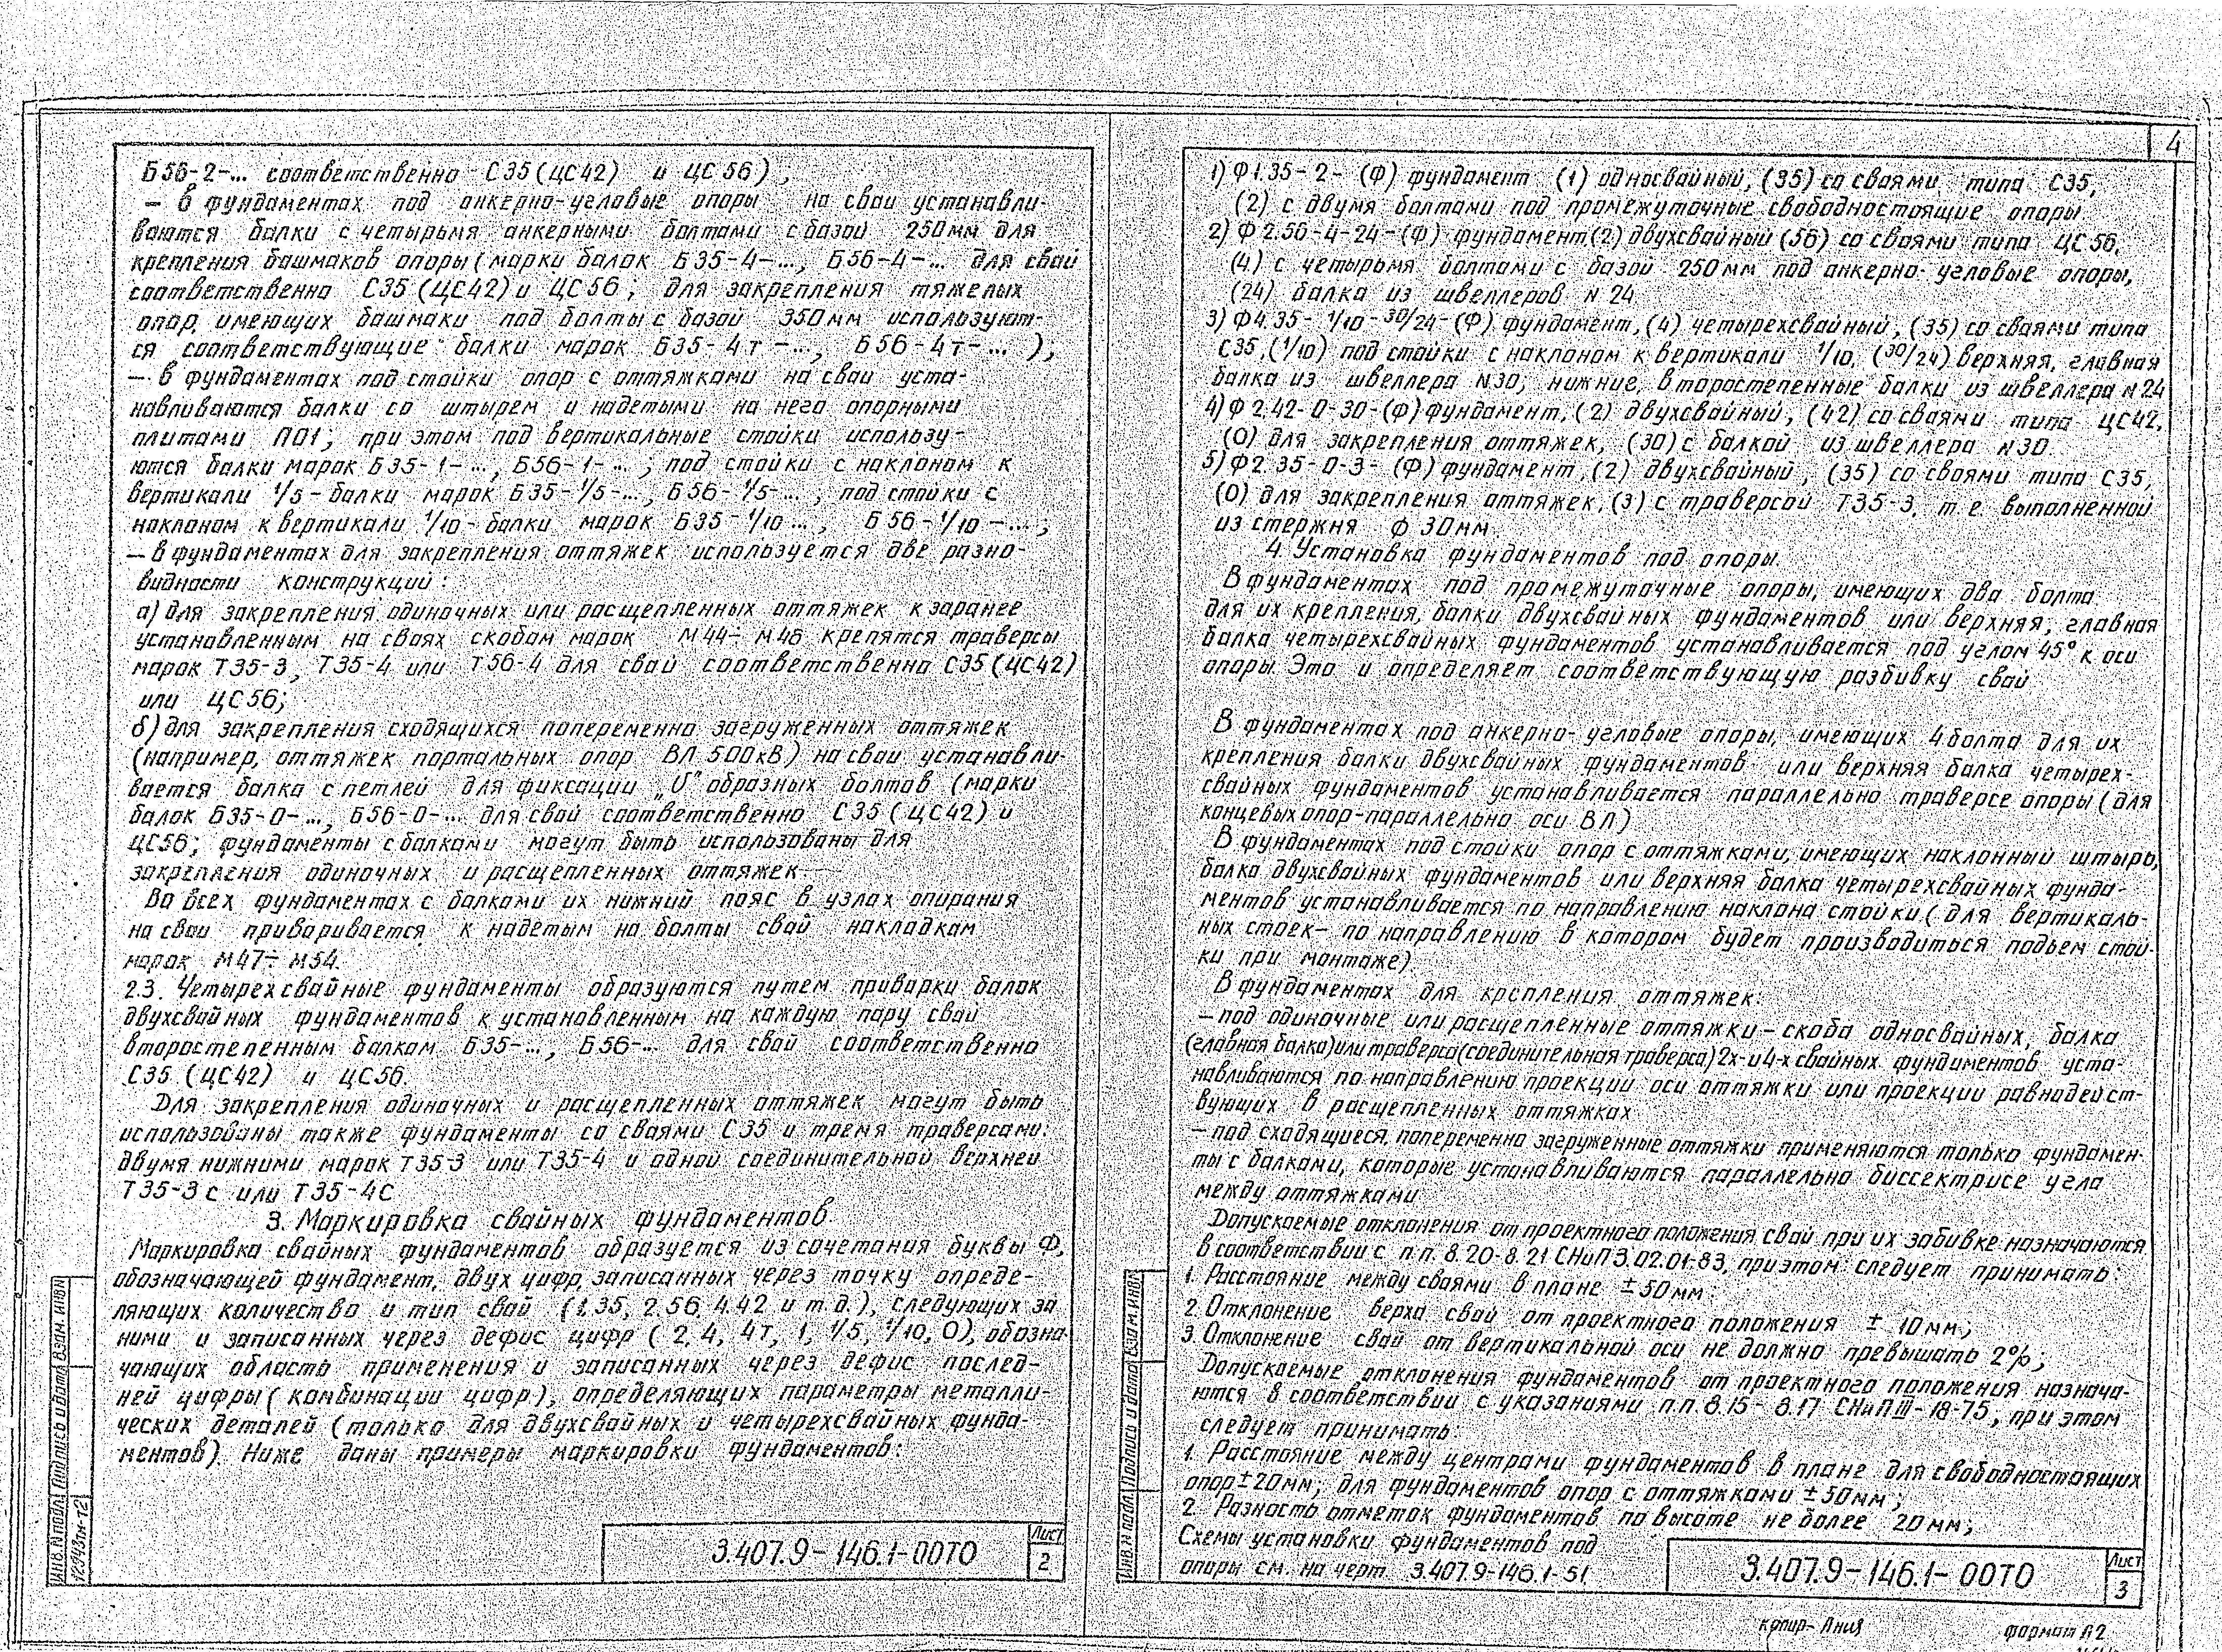 Б56-2-... соответственно С35(ЦС42) и ЦС56),
— в фундаментах под анкерно-угловые опоры на сваи устанавли-
ваются балки с четырьмя анкерными болтами с базой 250мм для
крепления башмаков опоры (марки балок Б35-4-..., Б56-4-... для свай
соответственно С35(ЦС42) и ЦС56; для закрепления тяжелых
опор, имеющих башмаки под болты с базой 350мм используют-
ся соответствующие балки марок Б35-4т-..., Б56-4т-... );
— в фундаментах под стойки опор с оттяжками на сваи уста-
навливаются балки со штырем и надетыми на него опорными
плитами ПО1; при этом под вертикальные стойки использу-
ются балки марок Б35-1-..., Б56-1-... ; под стойки с наклоном к
вертикали 1/5 - балки марок Б35-1/5-..., Б56-1/5-... , под стойки с
наклоном к вертикали 1/10 - балки марок Б35-1/10..., Б56-1/10-...;
— в фундаментах для закрепления оттяжек используется две разно-
видности конструкций:
а) для закрепления одиночных или расщепленных оттяжек к заранее
установленным на сваях скобам марок М44÷М46 крепятся траверсы
марок Т35-3, Т35-4 или Т56-4 для свай соответственно С35(ЦС42)
или ЦС56;
б) для закрепления сходящихся попеременно загруженных оттяжек
(например, оттяжек портальных опор ВЛ 500кВ) на сваи устанавли-
вается балка с петлей для фиксации „U" образных болтов (марки
балок Б35-0-..., Б56-0-... для свай соответственно С35(ЦС42) и
ЦС56; фундаменты с балками могут быть использованы для
закрепления одиночных и расщепленных оттяжек
Во всех фундаментах с балками их нижний пояс в узлах опирания
на сваи приваривается к надетым на болты свай накладкам
марок М47÷М54.
2.3. Четырехсвайные фундаменты образуются путем приварки балок
двухсвайных фундаментов к установленным на каждую пару свай
второстепенным балкам Б35-..., Б56-... для свай соответственно
С35 (ЦС42) и ЦС56.
Для закрепления одиночных и расщепленных оттяжек могут быть
использованы также фундаменты со сваями С35 и тремя траверсами:
двумя нижними марок Т35-3 или Т35-4 и одной соединительной верхней
Т35-3с или Т35-4С
3. Маркировка свайных фундаментов
Маркировка свайных фундаментов образуется из сочетания буквы Ф,
обозначающей фундамент, двух цифр, записанных через точку опреде-
ляющих количество и тип свай (1.35, 2.56, 4.42 и т.д.), следующих за
ними и записанных через дефис цифр (2, 4, 4т, 1, 1/5, 1/10, 0), обозна-
чающих область применения и записанных через дефис послед-
ней цифры (комбинации цифр), определяющих параметры металли-
ческих деталей (только для двухсвайных и четырехсвайных фунда-
ментов). Ниже даны примеры маркировки фундаментов:
3.407.9-146.1-00ТО
Лист
2
Инв.N подл. Подпись и дата Взам. инв N
4
1) Ф1.35-2- (Ф) фундамент (1) односвайный, (35) со сваями типа С35,
(2) с двумя болтами под промежуточные свободностоящие опоры
2) Ф2.56-4-24-(Ф) фундамент (2) двухсвайный (56) со сваями типа ЦС56,
(4) с четырьмя болтами с базой 250мм под анкерно-угловые опоры,
(24) балка из швеллеров N24
3) Ф4.35-1/10-30/24-(Ф) фундамент, (4) четырехсвайный, (35) со сваями типа
С35, (1/10) под стойки с наклоном к вертикали 1/10, (30/24) верхняя, главная
балка из швеллера N30, нижние, второстепенные балки из швеллера N24
4) Ф2.42-0-30-(Ф) фундамент, (2) двухсвайный, (42) со сваями типа ЦС42,
(0) для закрепления оттяжек, (30) с балкой из швеллера N30.
5) Ф2.35-0-3- (Ф) фундамент, (2) двухсвайный, (35) со сваями типа С35,
(0) для закрепления оттяжек, (3) с траверсой Т35-3, т.е. выполненной
из стержня ф 30мм.
4. Установка фундаментов под опоры.
В фундаментах под промежуточные опоры, имеющих два болта
для их крепления, балки двухсвайных фундаментов или верхняя, главная
балка четырехсвайных фундаментов устанавливается под углом 45° к оси
опоры. Это и определяет соответствующую разбивку свай
В фундаментах под анкерно-угловые опоры, имеющих 4 болта для их
крепления балки двухсвайных фундаментов или верхняя балка четырех-
свайных фундаментов устанавливается параллельно траверсе опоры (для
концевых опор-параллельно оси ВЛ)
В фундаментах под стойки опор с оттяжками, имеющих наклонный штырь,
балка двухсвайных фундаментов или верхняя балка четырехсвайных фунда-
ментов устанавливается по направлению наклона стойки (для вертикаль-
ных стоек - по направлению в котором будет производиться подъем стой-
ки при монтаже)
В фундаментах для крепления оттяжек:
— под одиночные или расщепленные оттяжки - скоба односвайных, балка
(главная балка) или траверса (соединительная траверса) 2х- и 4-х свайных фундаментов уста-
навливаются по направлению проекции оси оттяжки или проекции равнодейст-
вующих в расщепленных оттяжках
— под сходящиеся, попеременно загруженные оттяжки применяются только фундамен-
ты с балками, которые устанавливаются параллельно биссектрисе угла
между оттяжками
Допускаемые отклонения от проектного положения свай при их забивке назначаются
в соответствии с п.п. 8.20-8.21 СНиП 3.02.01-83, при этом следует принимать:
1. Расстояние между сваями в плане ±50мм;
2. Отклонение верха свай от проектного положения ± 10мм;
3. Отклонение свай от вертикальной оси не должно превышать 2%;
Допускаемые отклонения фундаментов от проектного положения назнача-
ются в соответствии с указаниями п.п. 8.15-8.17 СНиП III-18-75, при этом
следует принимать:
1. Расстояние между центрами фундаментов в плане для свободностоящих
опор ±20мм; для фундаментов опор с оттяжками ±50мм;
2. Разность отметок фундаментов по высоте не более 20мм;
Схемы установки фундаментов под
опоры см. на черт. 3.407.9-146.1-51.
3.407.9-146.1-00ТО
Лист
3
Инв.N подл. Подпись и дата Взам. инв N
копир- Лния
формат А2